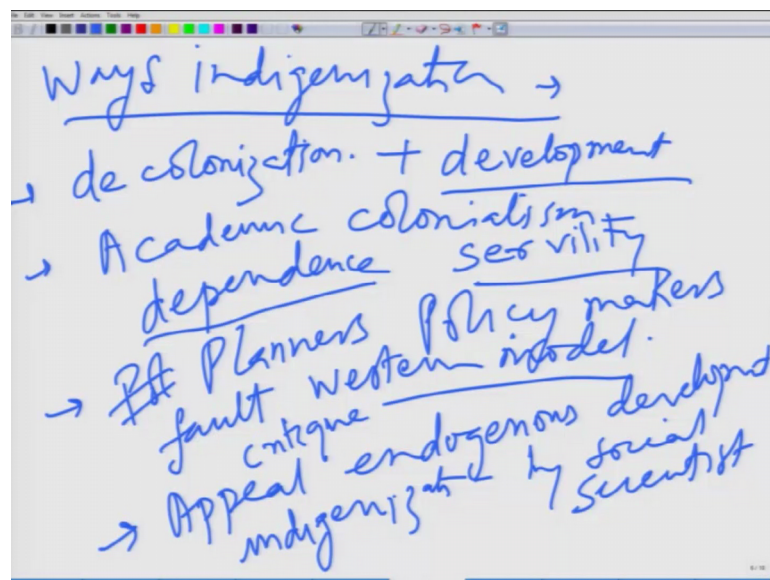 File Edit View Insert Actions Tools Help
Ways indigenization →
→ decolonization. + development
→ Academic colonialism
dependence servility
→ Planners Policy makers
fault western model.
critique
→ Appeal endogenous developmt
indigenizatn by social
scientist